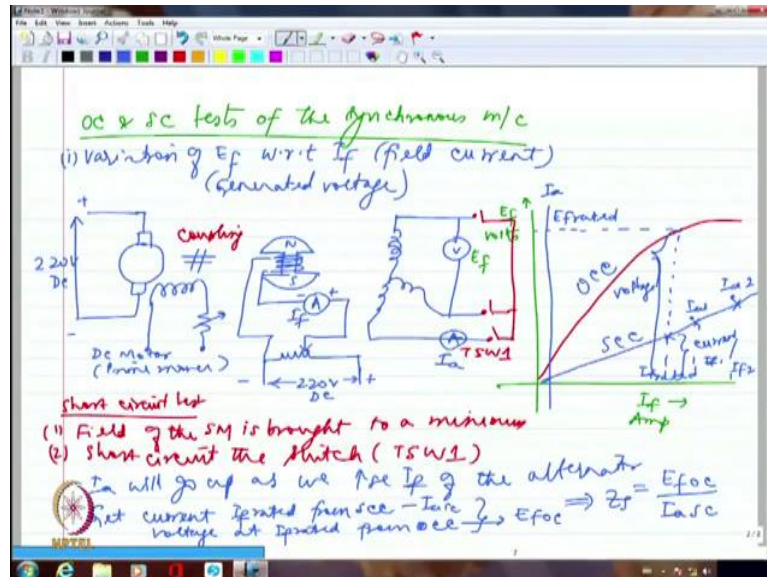 Note1 - Windows Journal
File Edit View Insert Actions Tools Help
Whole Page
OC & SC tests of the synchronous m/c
(i) Variation of Ef w.r.t If (field current)
(Generated voltage)
+
220V
DC
-
Coupling
DC Motor
(Prime mover)
N
S
A
+
-
If
- ←220V→ +
DC
V
Ef
A
Ia
TSW1
Ef
volts
Ia
Efrated
OCC
voltage
SCC
Ia1
Ia2
current
Ifrated
If1
If2
If →
Amp
Short circuit test
(1) Field of the SM is brought to a minimum
(2) Short circuit the switch (TSW1)
Ia will go up as we ↑se If of the alternator
Get current Ifrated from scc - Iasc
voltage at Ifrated from occ } → Efoc ⇒ Zs = Efoc / Iasc
NPTEL
2/2